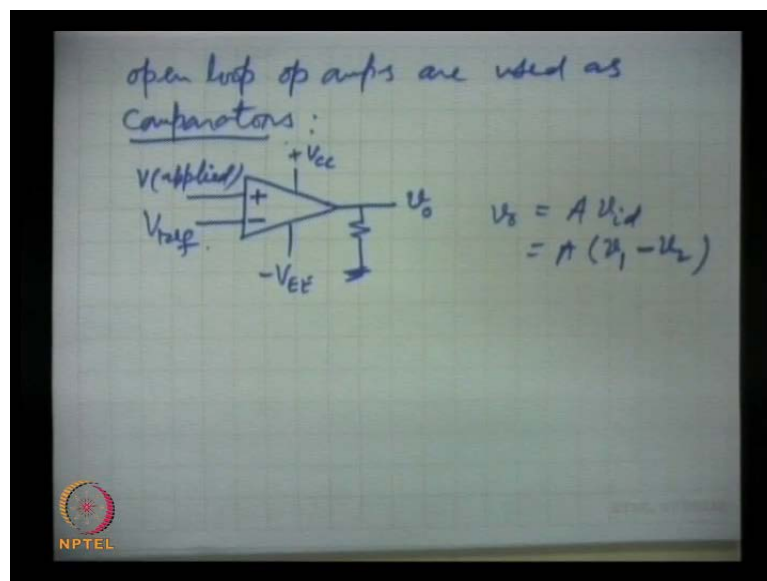 open loop op amps are used as
comparators :
+ Vcc
V(applied)
+
Vref.
−
v₀
−VEE
v₀ = A vid
= A (v₁ − v₂)
NPTEL